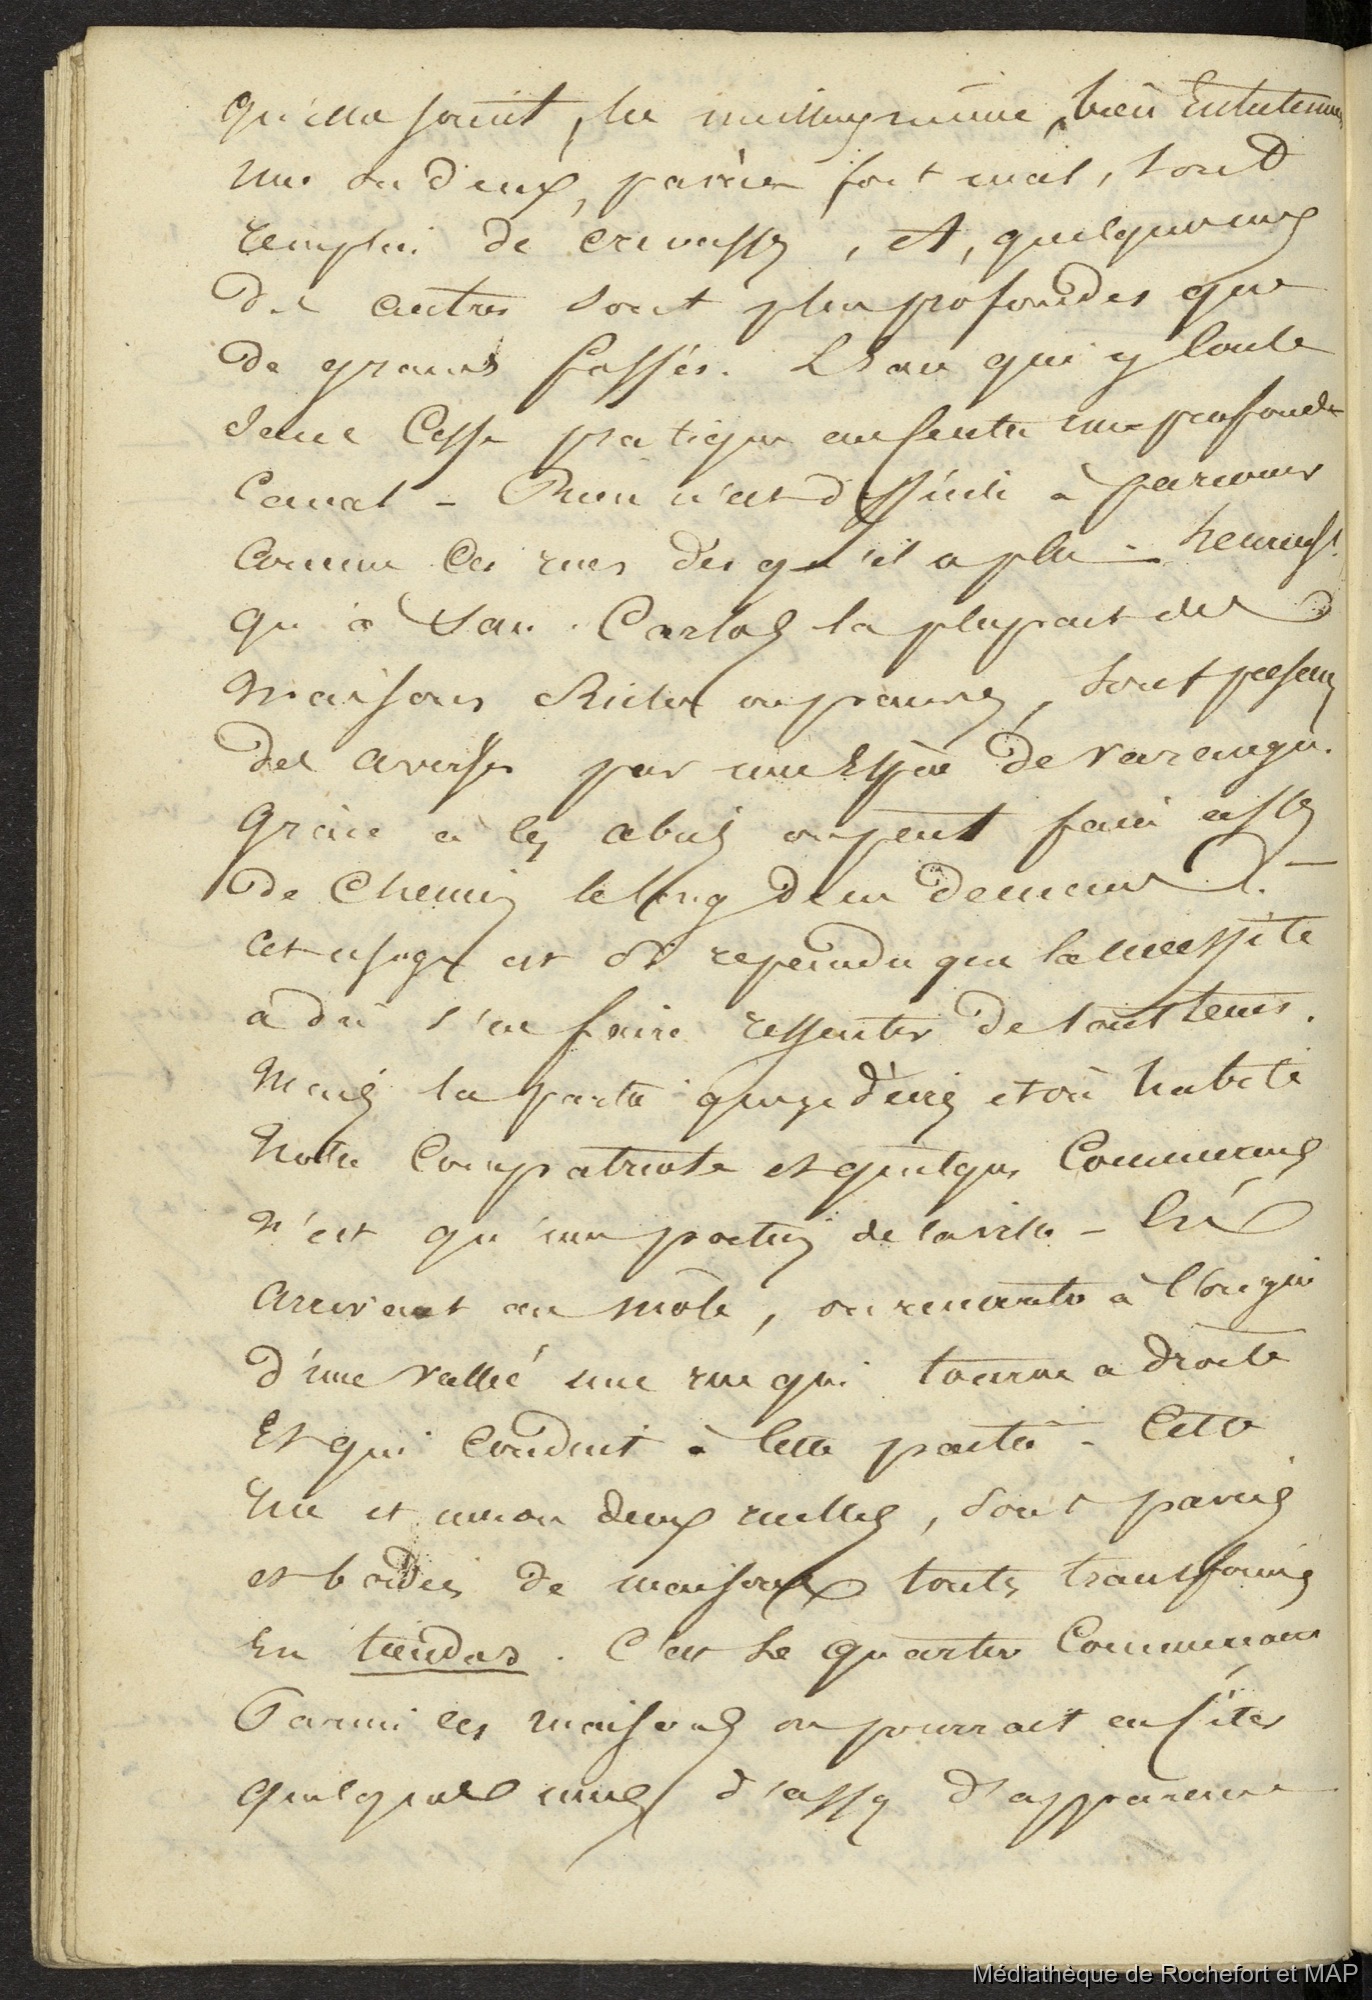 qu'elles soient, les meilleurs même, bien entretenues
une ou deux, pavées fort mal, sont
remplis de crevasses, et, quelques unes
des autres sont plus profondes que
de grands fossés. L'eau qui y coule
sans cesse pratique au centre un profonde
canal – Rien n'est difficile à parcourir
comme ces rues dès qu'il a plu – heureust
qu'à San-Carlos la plupart des
maisons riches ou pauvres, sont
des averses par une espèce de varangue.
Grâce à ces abris on peut faire assez
de chemin le long des demeures. –
cet usage est si répandu que la nécessité
a du s'en faire ressentir de tout tems.
Mais la partie que je décris et où habite
notre compatriote et quelques commerçans
n'est qu'une partie de la ville – En
arrivant au môle, on rencontre à l'origine
d'une vallée une rue qui tourne a droite
Et qui conduit à cette partie – Cette
rue et une ou deux ruelles, sont pavées
et bordées de maisons toutes transformées
En tiendas. C'est le quartier commerçant
Parmi ces maisons on pourrait en citer
quelques unes d'assez d'apparence
Médiathèque de Rochefort et MAP